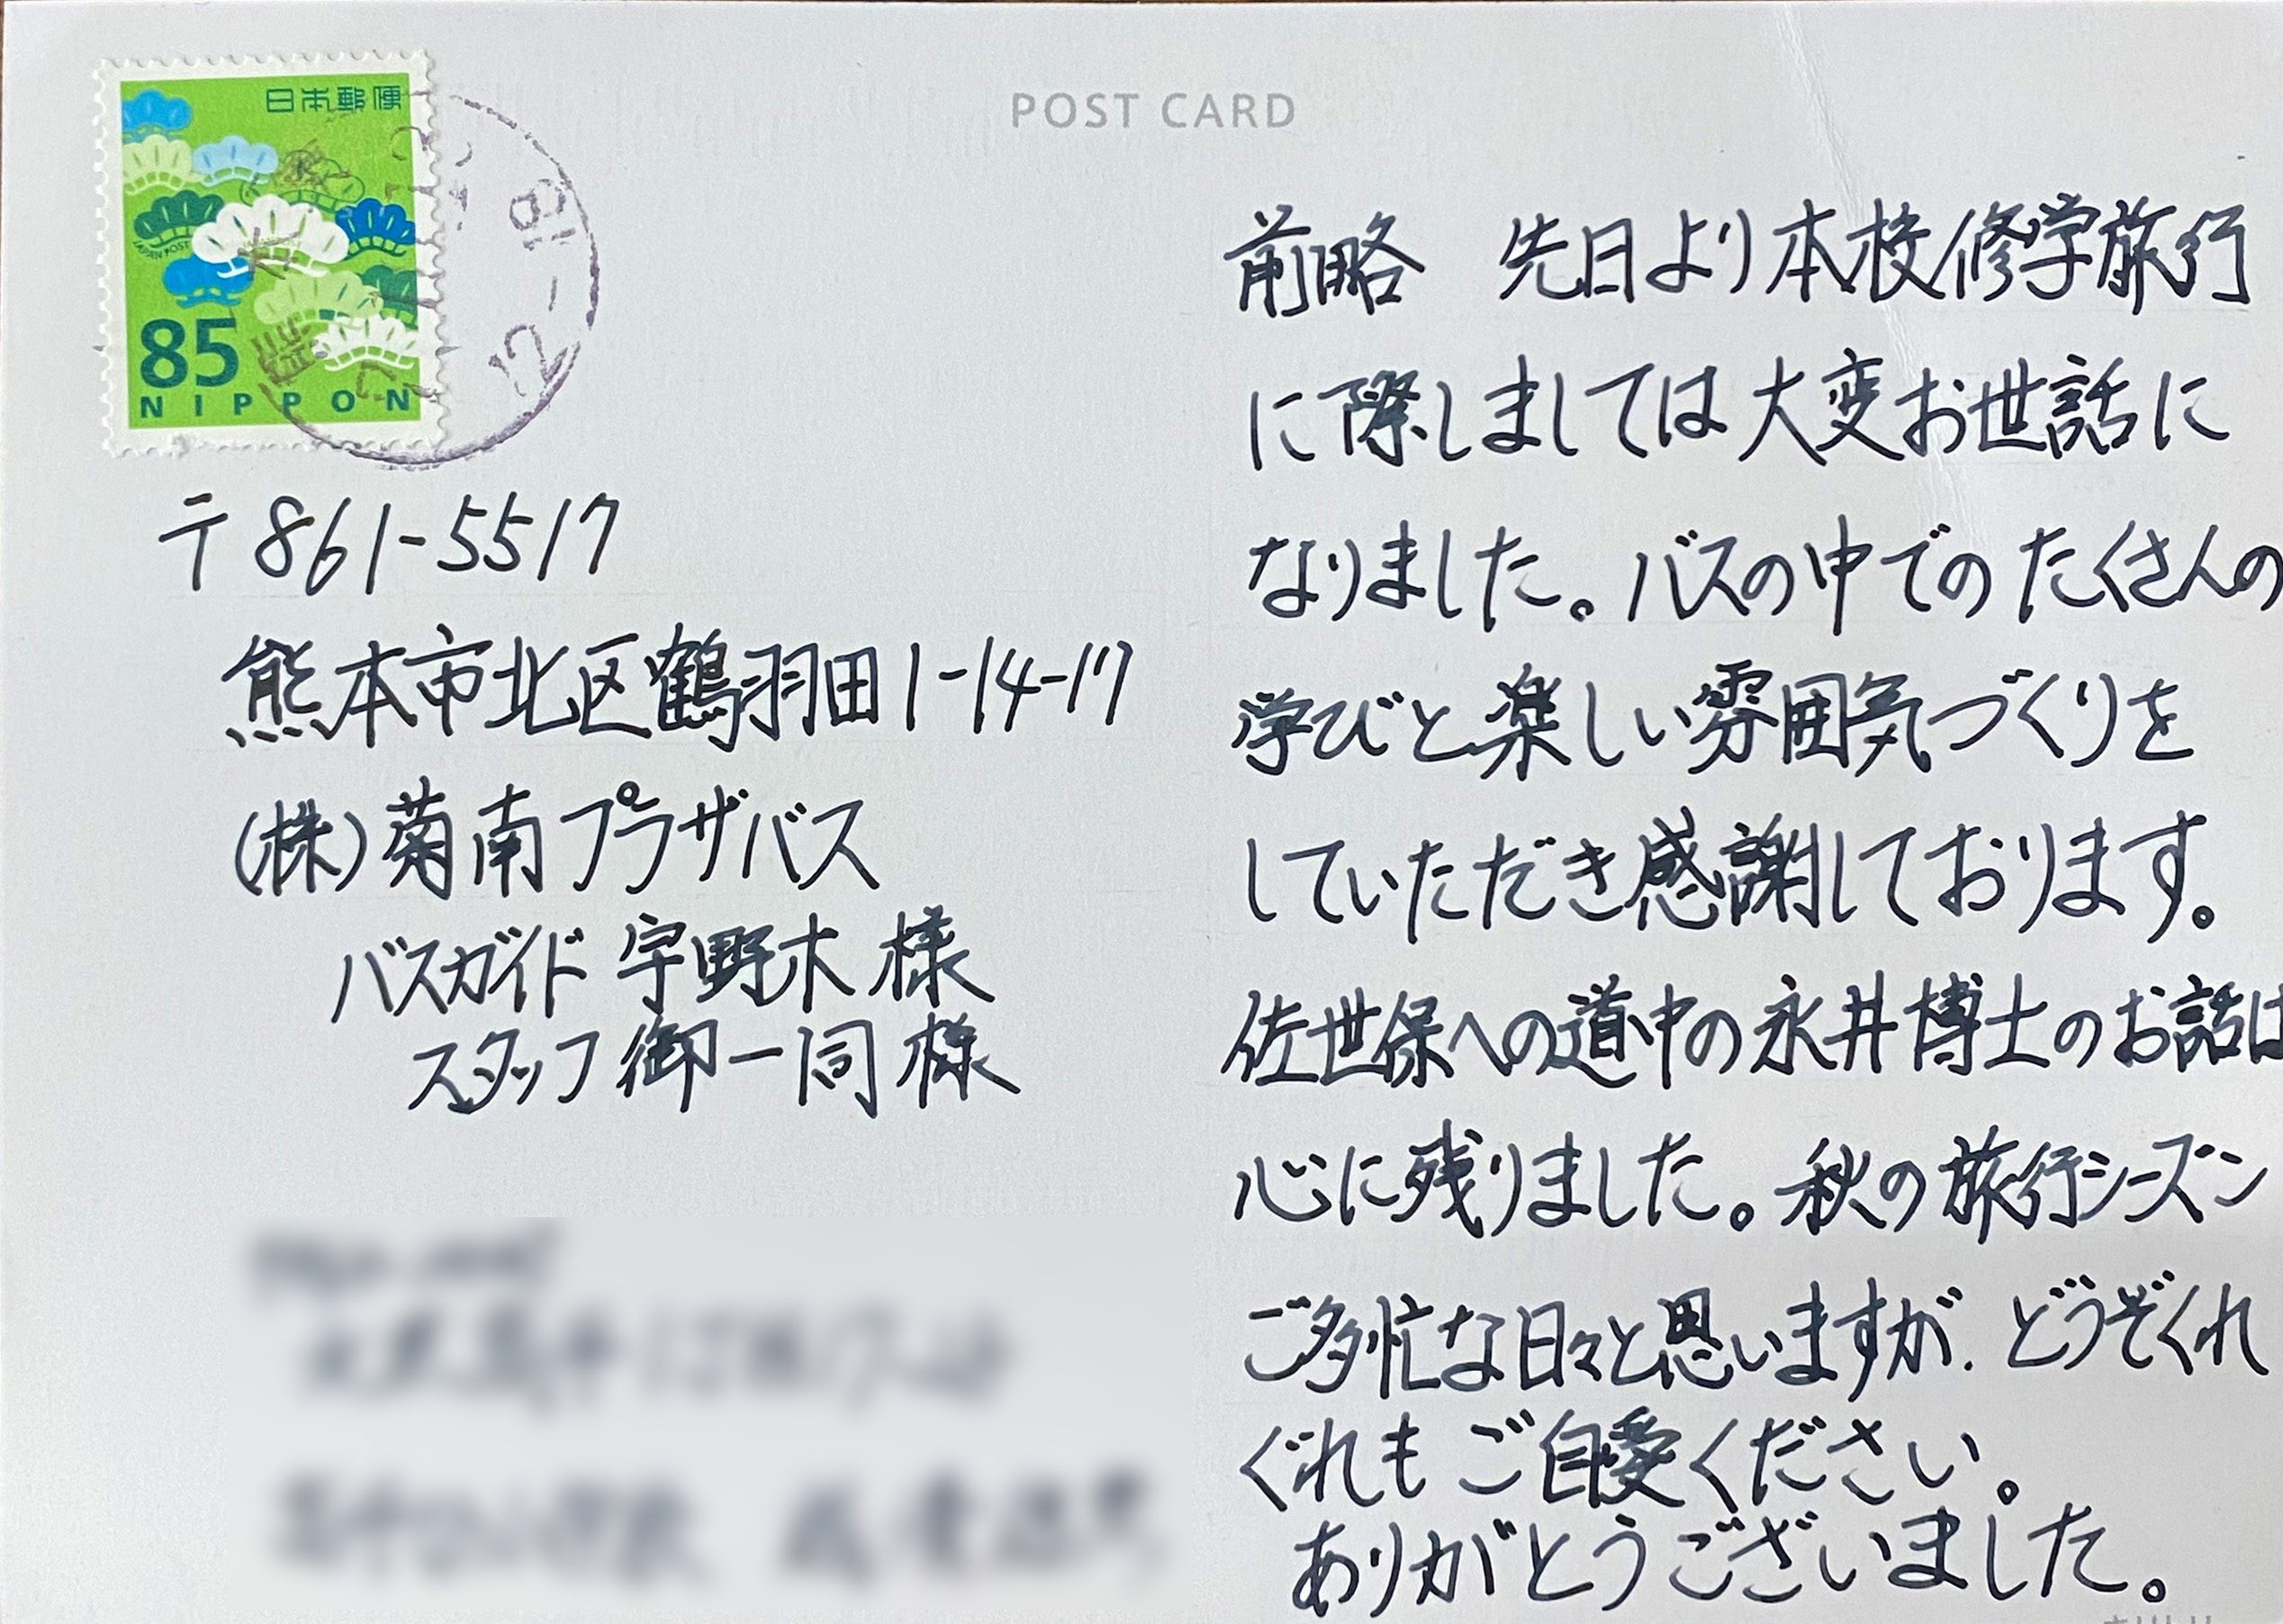 日本郵便
JAPAN POST
85
NIPPON
12-18
POST CARD
〒861-5517
熊本市北区鶴羽田1-14-17
(株)菊南プラザバス
バスガイド 宇野木 様
スタッフ 御一同 様
前略 先日より本校修学旅行
に際しましては大変お世話に
なりました。バスの中での たくさんの
学びと楽しい雰囲気づくりを
していただき感謝しております。
佐世保への道中の永井博士のお話は
心に残りました。秋の旅行シーズン
ご多忙な日々と思いますが、どうぞくれ
ぐれもご自愛ください。
ありがとうございました。